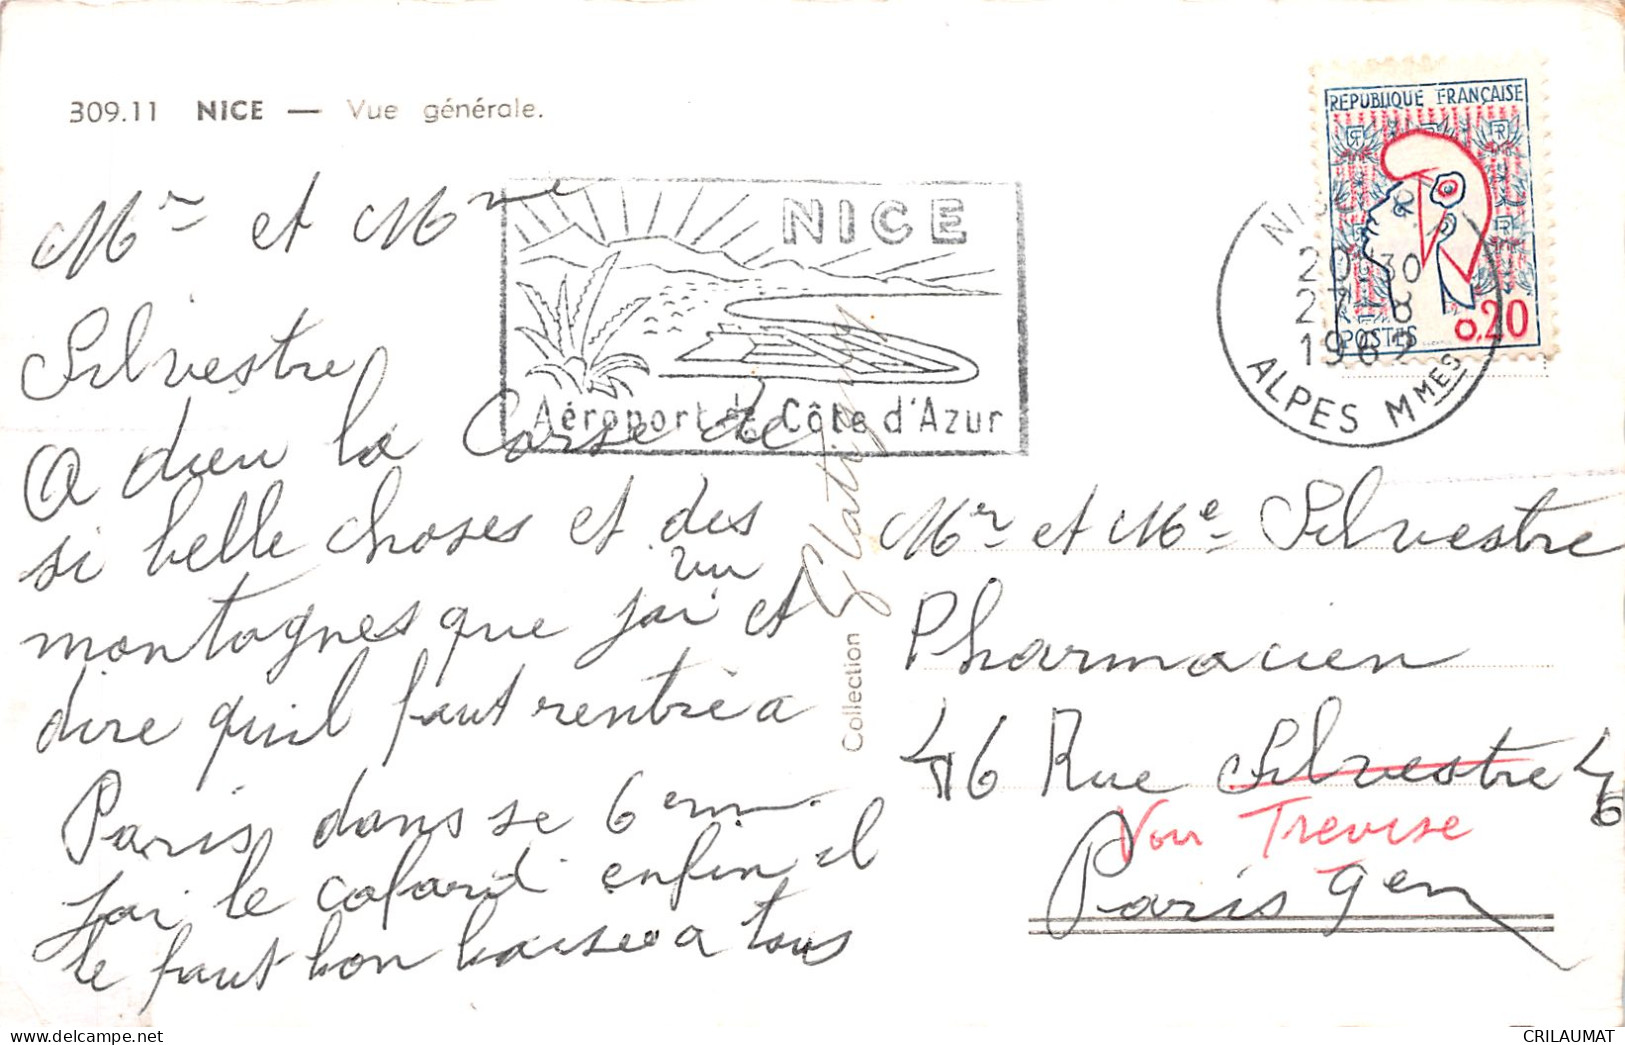 309.11 NICE — Vue générale.
Mr et Mme
Silvestre
A dieu la Corse de
si belle choses et des
montagnes que j'ai vu et
dire qu'il faut rentré a
Paris dans se 6em.
J'ai le cafard enfin il
le faut bon baisée a tous
NICE
Aéroport de Côte d'Azur
Collection
RÉPUBLIQUE FRANÇAISE
POSTES
0,20
NICE
20 30
27 8
1962
ALPES MMES
Mr et Me Silvestre
Pharmacien
46 Rue Silvestre 46
Voir Trevise
Paris 9em
CRILAUMAT